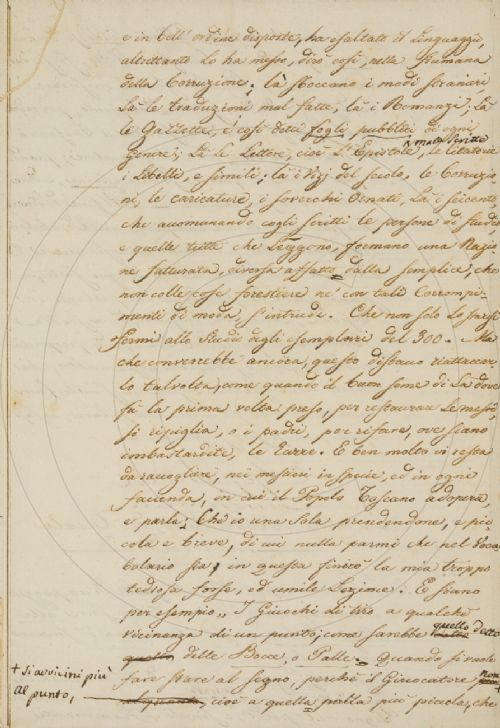 e in bell' ordine disposte, ha esaltato il Linguaggio,
altrettanto Lo ha messo, dirò così, nella
della Corruzione; là sboccano i modi stranieri,
Là le traduzioni mal fatte, là i Romanzi; Là
le Gazzette, e così detti fogli pubblici di ogni
male scritti
genere; Là le Lettere, cioè L'Epistole, le
i Libelli, e simili; là i Vizj del secolo, le Corruzio
ni, le caricature, i soverchi Ornati. Là i seicenti
che accomunando cogli scritti le persone di studio
e quelle tutte che Leggono, formano una Nazio
ne fatturata, diversa affatto dalla semplice, che
non colle cose forestiere nè con tali Corrompi-
menti di moda s'intrude. Che non solo Lo
fermi allo Studio degli esemplari del 300. Ma
che converrebbe ancora, questo
lo talvolta, come quando il buon seme di Là dove
fù la prima volta preso, per restaurare Le messi,
si ripiglia, o i padri, per rifare, ove siano
imbastardite, le razze. E ben molto vi resta
da raccogliere, nei mestieri in specie, ed in ogni
facienda, in cui il Popolo Toscano adopera,
e parla; Chè io una sola prendendone, e pic
cola e breve, di cui nulla parmi che nel Voca
bolario sia, in questa finirò la mia troppo
tediosa forse, ed umile Lezione. E siano
per esempio,, I Giuochi di tiro a qualche
vicinanza di un punto; come sarebbe quello detto
delle Bocce, o Palle. Quando si vuole
+ si avvicini più
fare stare al segno, perchè il Giuocatore non
al punto,
cioè a quella palla più piccola, che